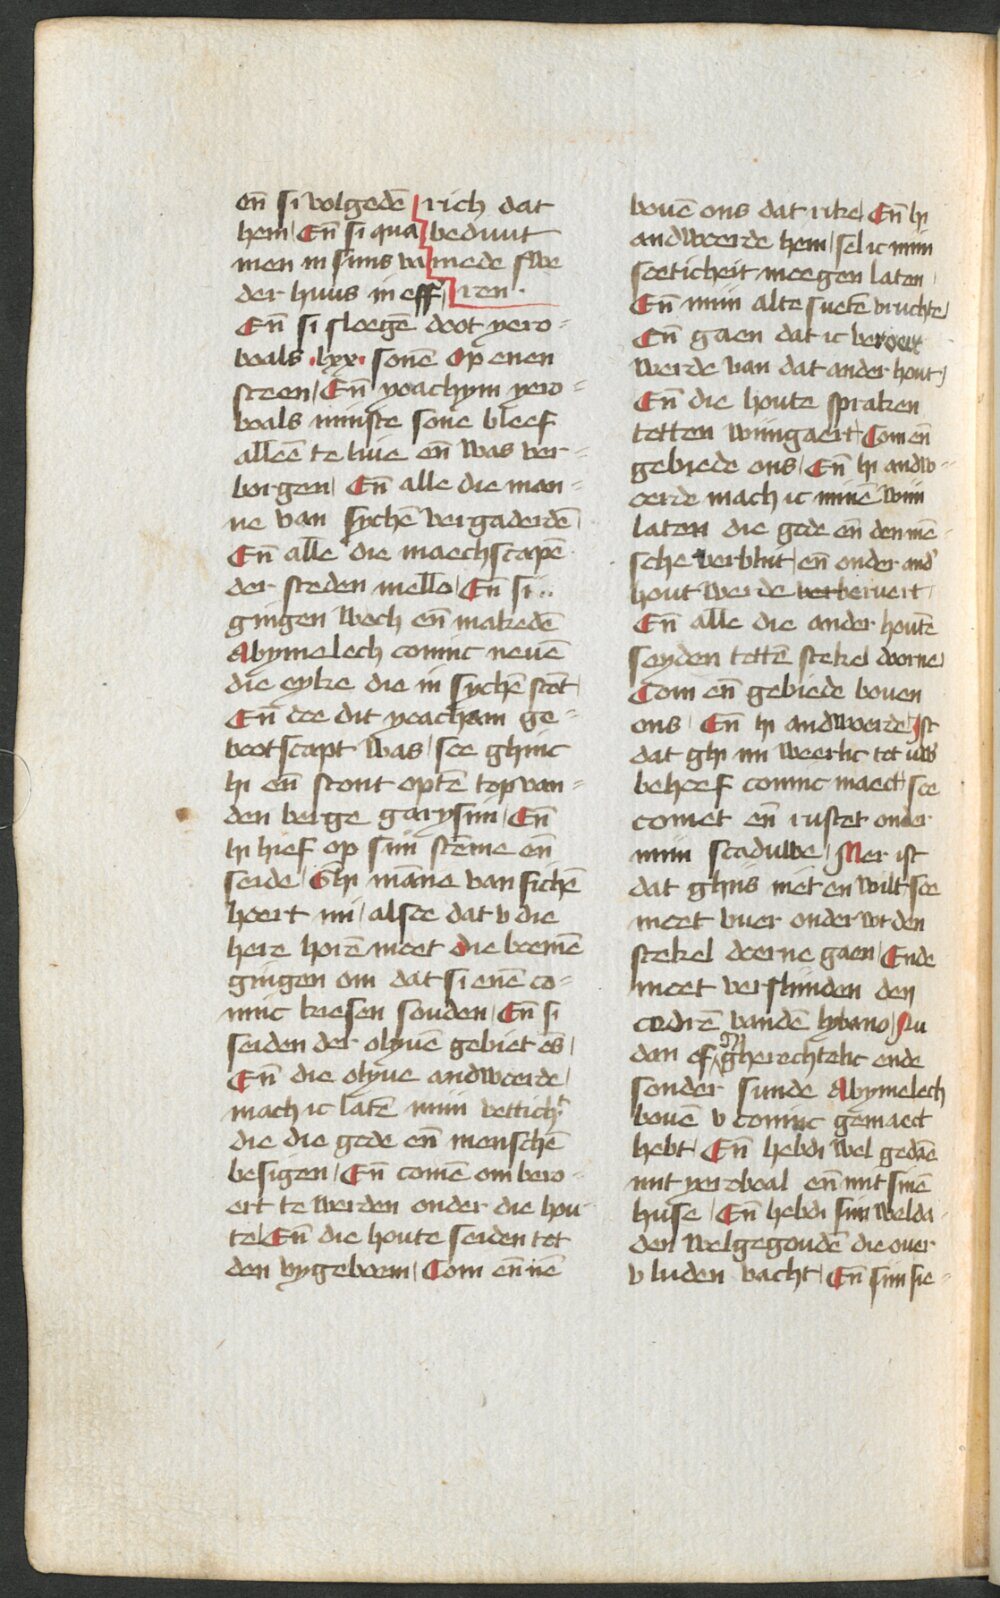 en̄ si volgedē
hem / En̄ si qua
men in sijns va
der huus in eff
rich dat
beduut
mede swe
ren ·
En̄ si sloegē doot yero=
boals .lxx. sonē Op enen
steen / En̄ yoachym yero=
boals minste sone bleef
alleē te liue en̄ was ver=
borgen / En̄ alle die man=
ne van sychē vergaderdē
En̄ alle die maechscapē
der steden mello / En̄ si ..
gingen woch en̄ makedē
Abymelech coninc neuē
die eyke die in sychē stōt
En̄ doe dit yoacham ge=
bootscapt was / soe ghinc
hi en̄ stont optē top van=
den berge garysim / En̄
hi hief op sijn stēme en̄
seide / Ghi māne van sichē
hoert mi / alsoe dat v die
here horē moet die boemē
gingen om dat si enē co=
ninc kiesen souden / En̄ si
seiden der olyuē gebiet ōs /
En̄ die olyue andwoerde /
mach ic latē mijn vettich
die die gode en̄ menschē
besigen / En̄ comē om bero=
ert te werden onder die hou
te / En̄ die houte seiden tot
den vygeboem / Com en̄ nē
bouē ons dat rike / En̄ hi
andwoerde hem / sel ic mijn
soeticheit moegen laten /
En̄ mijn alte suetē vruchtē /
En̄ gaen dat ic beroert
werde van dat ander hout /
En̄ die houte spraken
totten wijngaert / Com en̄
gebiede ons / En̄ hi andw=
oerde mach ic minē wijn
laten die gode en̄ den mē=
sche verblijt / en̄ onder and'
hout werde ver beruert /
En̄ alle die ander houtē
seyden tottē stekel doorne /
Com en̄ gebiede bouen
ons / En̄ hi andwoerde / Ist
dat ghi mi weerlic tot uw
behoef coninc maect / soe
comet en̄ rustet onder
mijn scaduwe / Mer ist
dat ghijs niet en wilt soe
moet vuer onder wt den
stekel doerne gaen / Ende
moet verslinden den
cedrē vandē lybano / Nu
dan of ghi gherechtelic ende
sonder sunde Abymelech
bouē v coninc gemaect
hebt / En̄ hebdi wel gedāe
mit yeroboal en̄ mit sinē
huse / En̄ hebdi sijn welda=
den welgegoudē die ouer
v luden vacht / En̄ sijn sie=